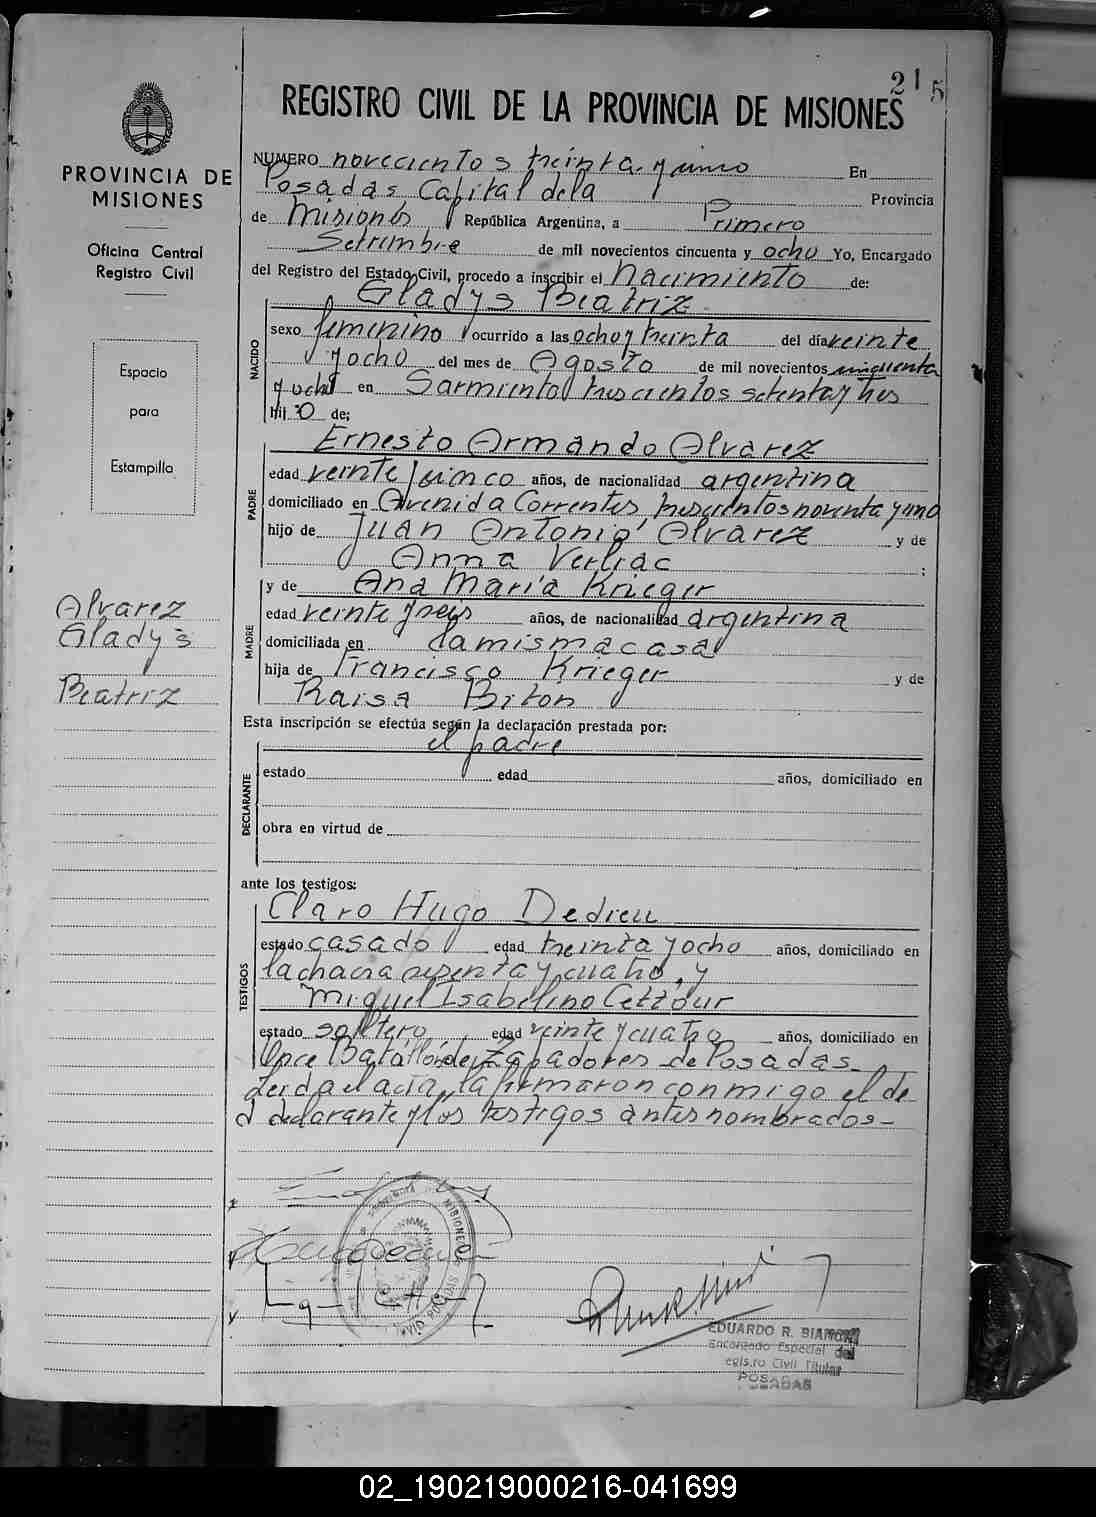 215
REGISTRO CIVIL DE LA PROVINCIA DE MISIONES
PROVINCIA DE
MISIONES
Oficina Central
Registro Civil
Espacio
para
Estampilla
Alvarez
Gladys
Beatriz
NUMERO novecientos treinta y cinco En
Posadas Capital de la Provincia
de Misiones República Argentina, a Primero
Setiembre de mil novecientos cincuenta y ocho Yo, Encargado
del Registro del Estado Civil, procedo a inscribir el nacimiento de:
Gladys Beatriz
NACIDO
sexo femenino ocurrido a las ocho y treinta del día veinte
y ocho del mes de Agosto de mil novecientos cincuenta
y ocho en Sarmiento trescientos setenta y tres
hijo de:
Ernesto Armando Alvarez
PADRE
edad veinte y cinco años, de nacionalidad argentina
domiciliado en Avenida Corrientes trescientos noventa y uno
hijo de Juan Antonio Alvarez y de
Anna Verliac ;
y de Ana María Krieger
MADRE
edad veinte y seis años, de nacionalidad argentina
domiciliada en la misma casa
hija de Francisco Krieger y de
Raisa Biton
Esta inscripción se efectúa según la declaración prestada por:
el padre
DECLARANTE
estado edad años, domiciliado en
obra en virtud de
ante los testigos:
Claro Hugo Dedieu
TESTIGOS
estado casado edad treinta y ocho años, domiciliado en
la chacra sesenta y cuatro, y
Miguel Isabelino Cettour
estado soltero edad veinte y cuatro años, domiciliado en
Once Batallón de Zapadores de Posadas.
Leida el acta, la firmaron conmigo el de
declarante y los testigos antes nombrados-
EDUARDO R.
Encargado Especial del
Registro Civil Titular
POSADAS
02_190219000216-041699